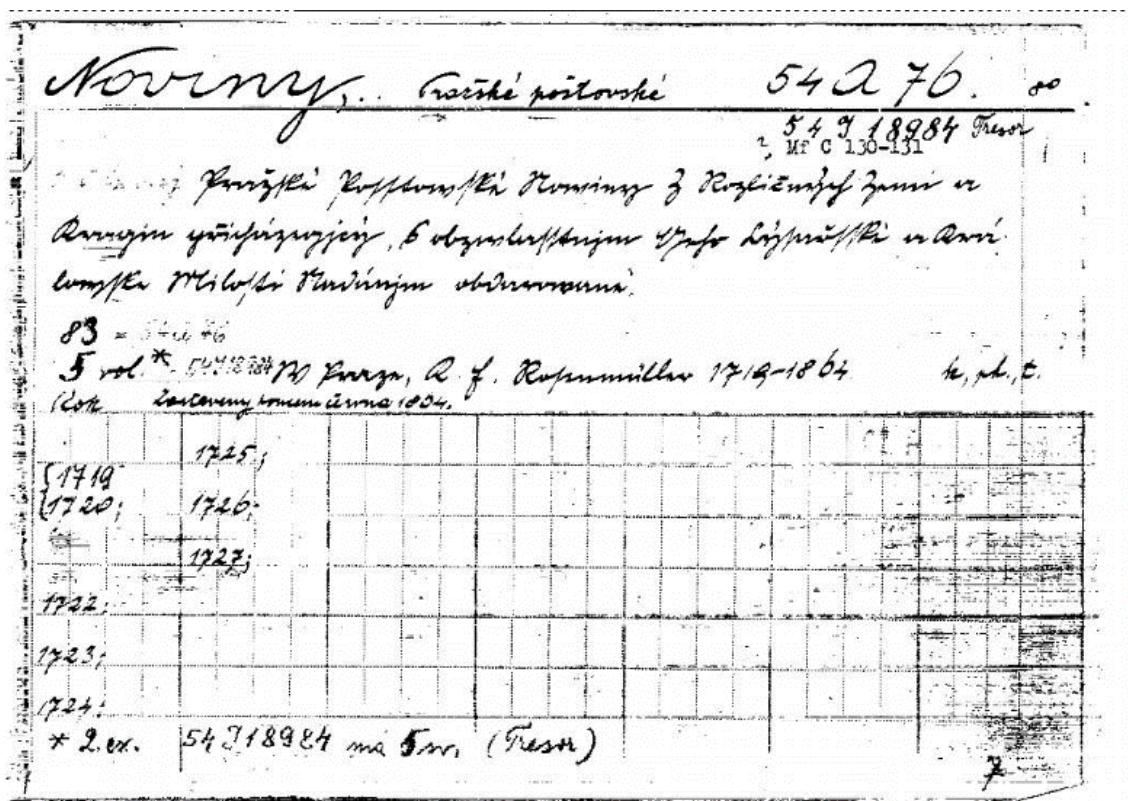 Noviny,.. Pražské poštovské 54 A 76. 8°
54 J 18984 Tresor
2, Mf C 130-131
Pražské Posstowské Nowiny Z Rozličných Zemi a
Kragin přicházegjcý, S obzwlasstnjm Geho Cýsařské a Krá-
lowske Milosti Nadánjm obdarowané.
83 = 54 A 76
5 vol.* 54 J 18984 W Praze, K. F. Rosenmüller 1719-1804 k, ph., t.
Rok Zastaveny koncem června 1804.
1725;
{1719
{1720; 1726;
1727;
1722;
1723;
1724;
* 2. ex. 54 J 18984 má 5 sv. (Tresor)
7